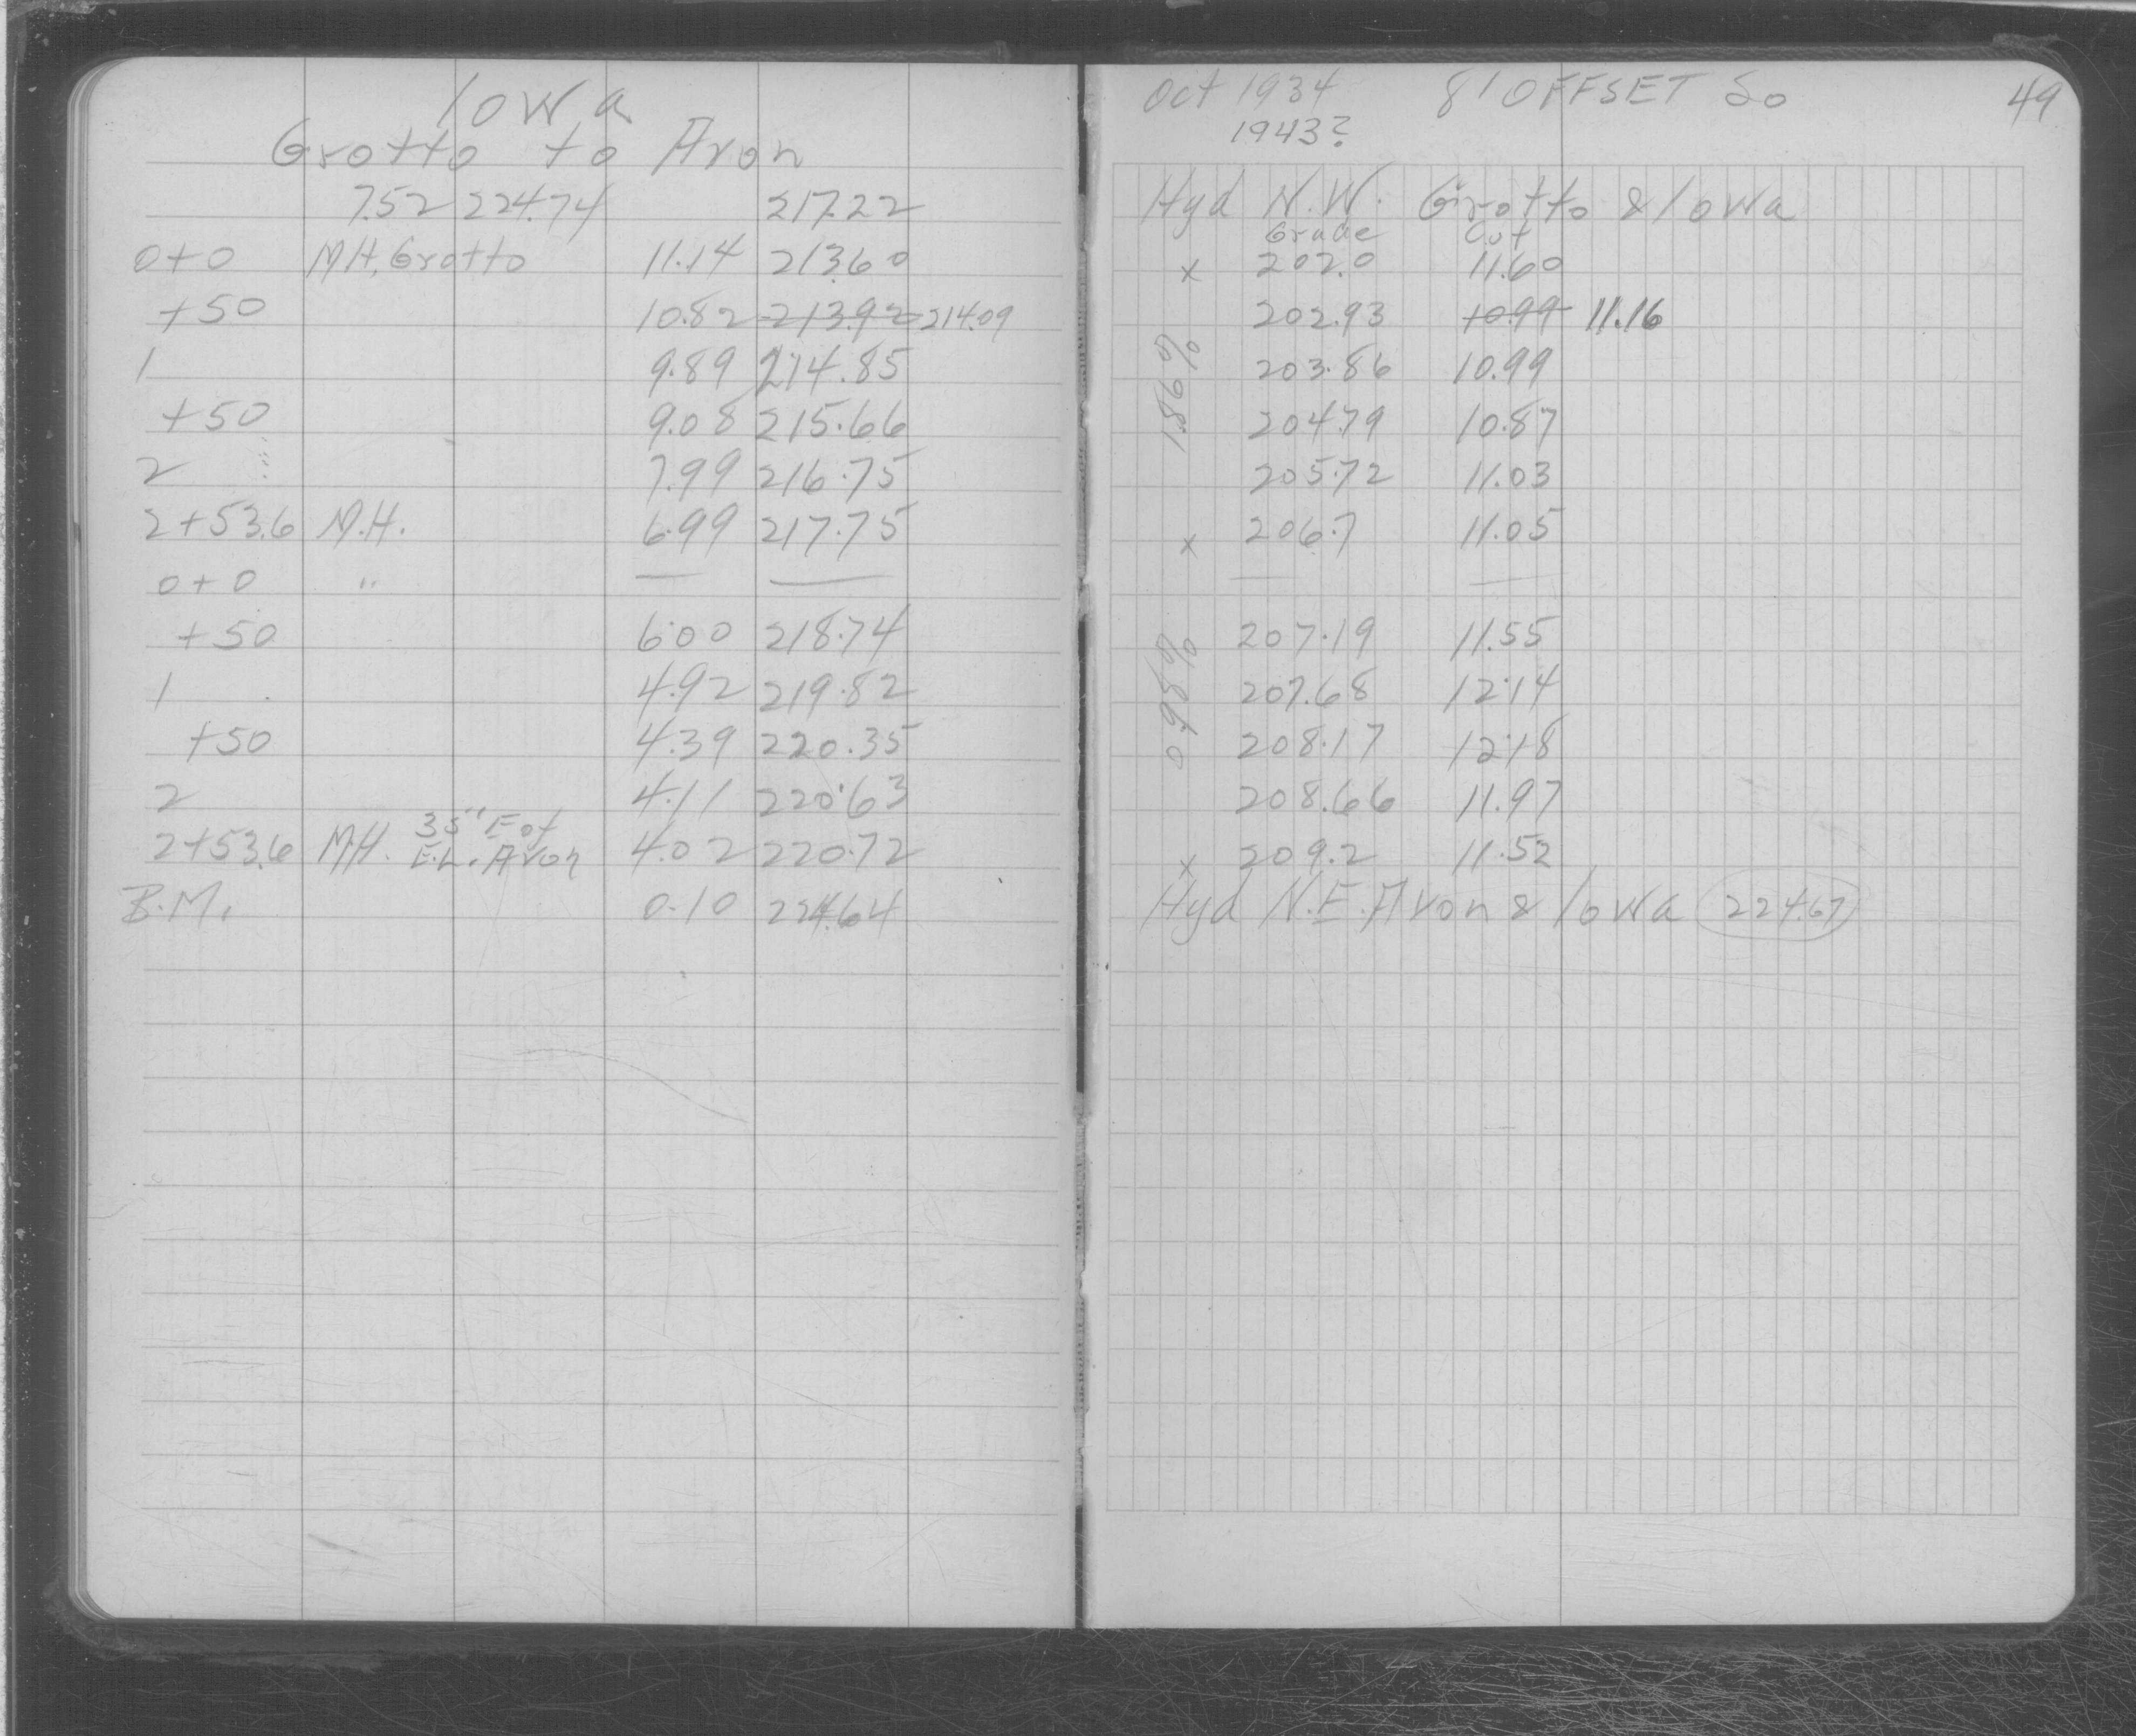 Iowa
Grotto to Avon
7.52 224.74 217.22
0+0 M.H. Grotto 11.14 213.60
+50 10.82 213.92 214.09
1 9.89 214.85
+50 9.08 215.66
2 7.99 216.75
2+53.6 M.H. 6.99 217.75
0+0 "
+50 6.00 218.74
1 4.92 219.82
+50 4.39 220.35
2 4.11 220.63
35" E of
2+53.6 M.H. E.L. Avon 4.02 220.72
B.M. 0.10 224.64
Oct 1934 8' OFFSET So 49
1943?
Hyd N.W. Grotto & Iowa
Grade Cut
x 202.0 11.60
202.93 10.99 11.16
1.86%
203.86 10.99
204.79 10.87
205.72 11.03
x 206.7 11.05
0.98%
207.19 11.55
207.68 12.14
208.17 12.18
208.66 11.97
x 209.2 11.52
Hyd N.E. Avon & Iowa 224.67